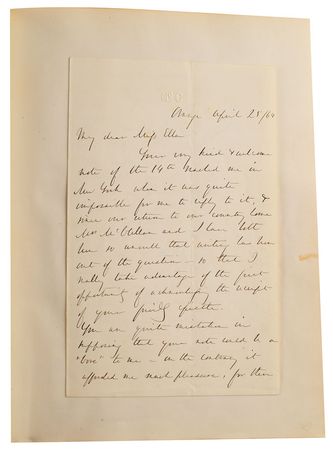 Orange April 25/64
My dear Miss Ellen
Your very kind & welcome
note of the 14th reached me in
New York when it was quite
impossible for me to reply to it, &
since our return to our country home
Mrs McClellan and I have both
been so unwell that writing has been
out of the question – so that I
really take advantage of the first
opportunity of acknowledging the receipt
of your friendly
You are quite mistaken in
supposing that your note could be a
"bore" to me – on the contrary it
afforded me much pleasure, for there